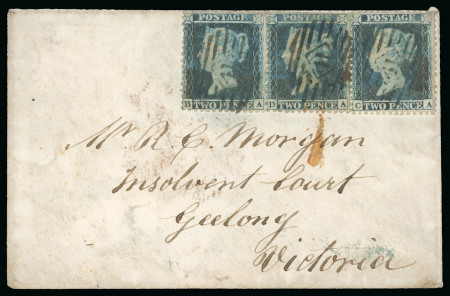 POSTAGE POSTAGE POSTAGE
B TWO PENCE A D TWO PENCE A C TWO PENCE A
Mr R. C. Morgan
Insolvent Court
Geelong
Victoria